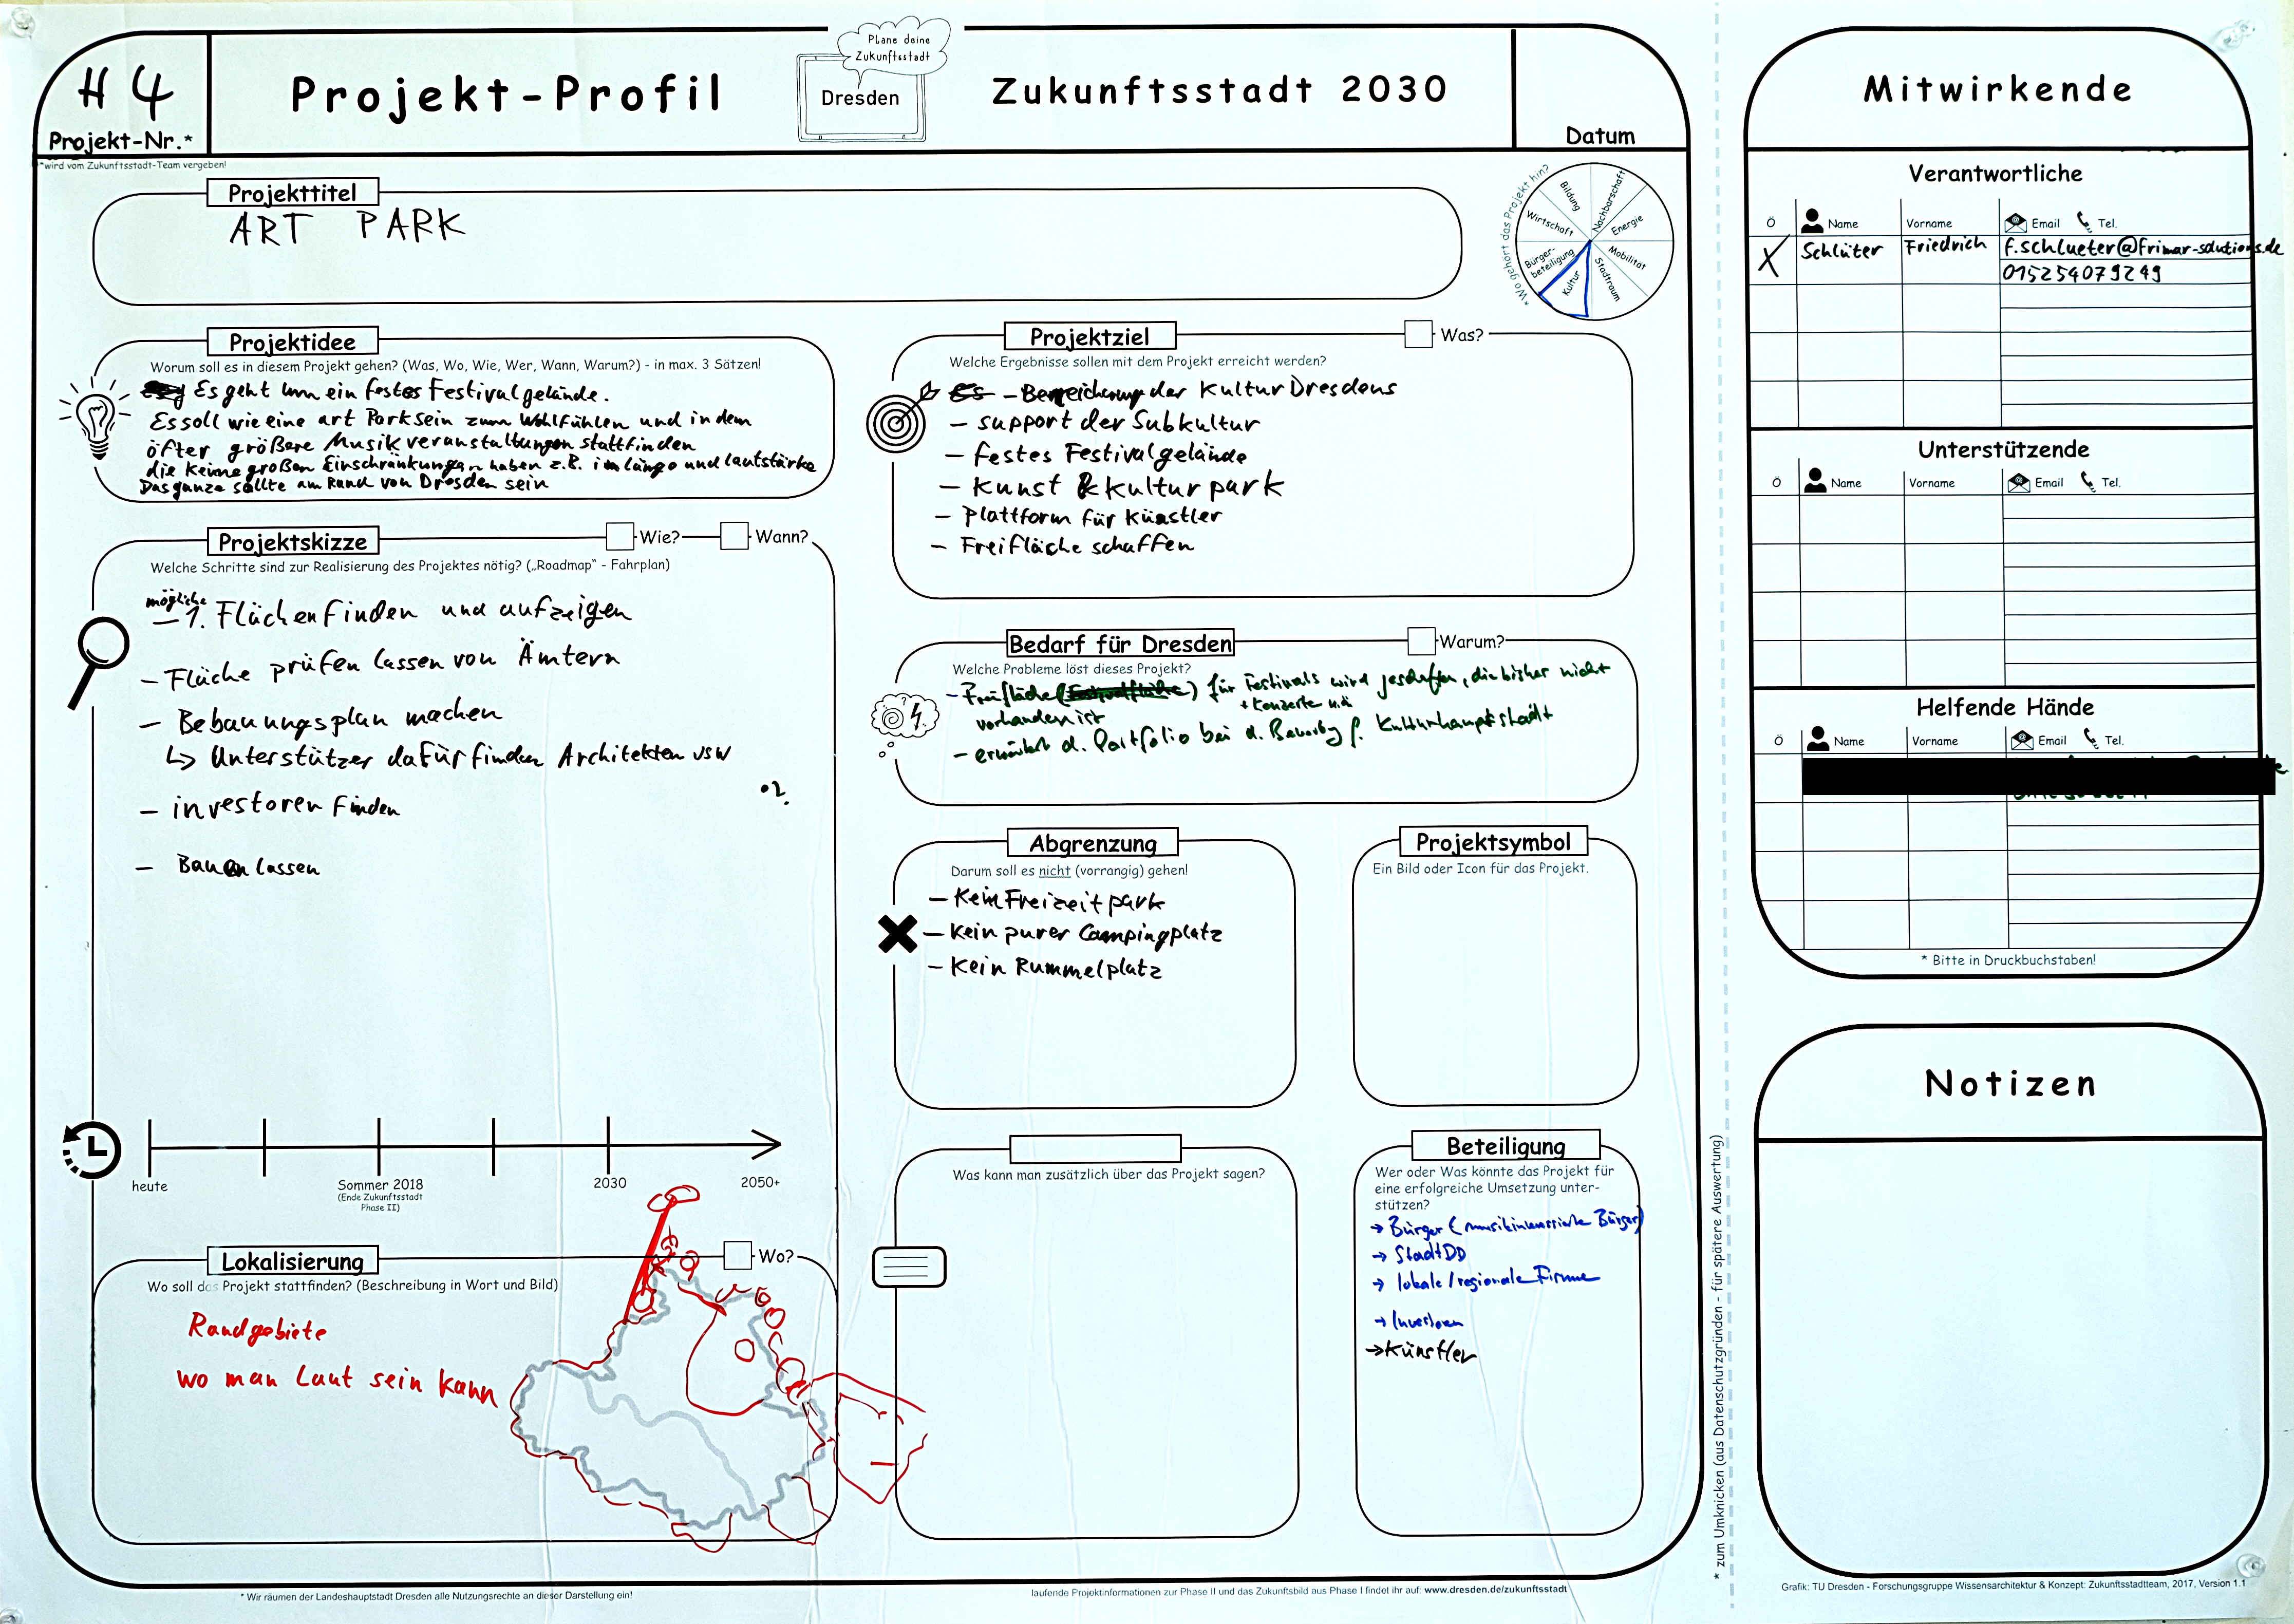 H 4
Projekt-Nr.*
*wird vom Zukunftsstadt-Team vergeben!
Projekt-Profil
Plane deine
Zukunftsstadt
Dresden
Zukunftsstadt 2030
Datum
Projekttitel
ART PARK
*Wo gehört das Projekt hin?
Bildung
Nachbarschaft
Wirtschaft
Energie
Bürger-
beteiligung
Mobilität
Kultur
Stadtraum
Projektidee
Worum soll es in diesem Projekt gehen? (Was, Wo, Wie, Wer, Wann, Warum?) - in max. 3 Sätzen!
Es geht um ein festes Festivalgelände.
Es soll wie eine art Park sein zum Wohlfühlen und in dem
öfter größere Musikveranstaltungen stattfinden
die keine großen Einschränkungen haben z.B. in länge und lautstärke
Das ganze sollte am Rand von Dresden sein
Projektskizze
Wie?
Wann?
Welche Schritte sind zur Realisierung des Projektes nötig? („Roadmap" - Fahrplan)
mögliche
– 1. Flächen finden und aufzeigen
– Fläche prüfen lassen von Ämtern
– Bebauungsplan machen
↳ Unterstützer dafür finden Architekten usw
– investoren finden
– Bauen lassen
heute
Sommer 2018
(Ende Zukunftsstadt
Phase II)
2030
2050+
Lokalisierung
Wo?
Wo soll das Projekt stattfinden? (Beschreibung in Wort und Bild)
Randgebiete
wo man Laut sein kann
Projektziel
Was?
Welche Ergebnisse sollen mit dem Projekt erreicht werden?
Es – Bereicherung der Kultur Dresdens
– support der Subkultur
– festes Festivalgelände
– Kunst & Kulturpark
– Plattform für Künstler
– Freifläche schaffen
Bedarf für Dresden
Warum?
Welche Probleme löst dieses Projekt?
– Freifläche (Festivalfläche) für Festivals wird geschaffen, die bisher nicht
+ Konzerte u.ä
vorhanden ist
– erweitert d. Portfolio bei d. Bewerbg f. Kulturhauptstadt
Abgrenzung
Darum soll es nicht (vorrangig) gehen!
– Kein Freizeitpark
– Kein purer Campingplatz
– Kein Rummelplatz
Projektsymbol
Ein Bild oder Icon für das Projekt.
Was kann man zusätzlich über das Projekt sagen?
Beteiligung
Wer oder Was könnte das Projekt für
eine erfolgreiche Umsetzung unter-
stützen?
→ Bürger (musikinteressierte Bürger)
→ Stadt DD
→ lokale/regionale Firme
→ Investoren
→ Künstler
* Wir räumen der Landeshauptstadt Dresden alle Nutzungsrechte an dieser Darstellung ein!
laufende Projektinformationen zur Phase II und das Zukunftsbild aus Phase I findet ihr auf: www.dresden.de/zukunftsstadt
* zum Umknicken (aus Datenschutzgründen - für spätere Auswertung)
Mitwirkende
Verantwortliche
Ö Name Vorname Email Tel.
X Schlüter Friedrich f.schlueter@frimar-solutions.de
015254079249
Unterstützende
Ö Name Vorname Email Tel.
Helfende Hände
Ö Name Vorname Email Tel.
* Bitte in Druckbuchstaben!
Notizen
Grafik: TU Dresden - Forschungsgruppe Wissensarchitektur & Konzept: Zukunftsstadtteam, 2017, Version 1.1